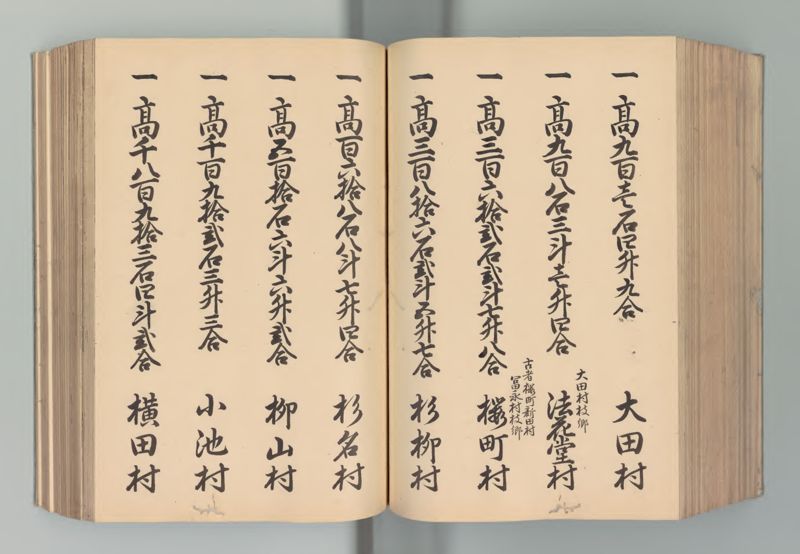 一高九百壱石四升九合 大田村
一高九百八石三斗壱升四合 大田村枝郷 法花堂村
一高三百六拾弐石弐斗七升八合 古者桜町新田村 冨永村枝郷 桜町村
一高三百八拾六石弐斗五升七合 杉柳村
一高百六拾八石八斗七升四合 杉名村
一高五百拾石六斗六升弐合 柳山村
一高千百九拾弐石三升三合 小池村
一高千八百九拾三石四斗弐合 横田村